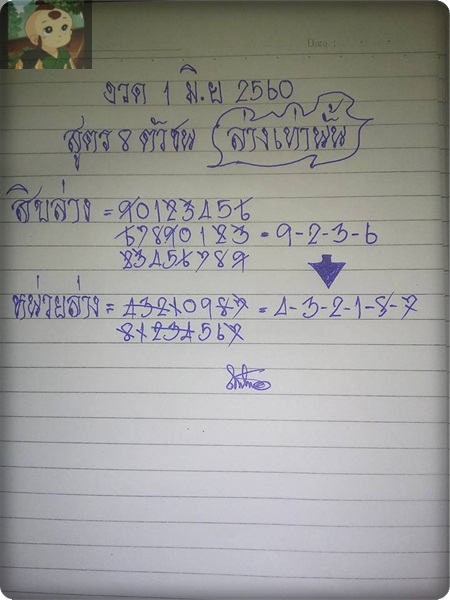 Date :
งวด 1 มิ.ย 2560
สูตร 8 ตัวชน ล่างเท่านั้น
สิบล่าง = 90123456
67890123 = 9-2-3-6
23456789
หน่วยล่าง = 43210987 = 4-3-2-1-8-7
81234567